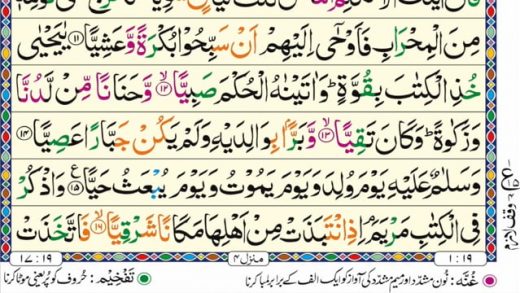 مِنَ الْمِحْرَابِ فَاَوْحٰۤى اِلَیْهِمْ اَنْ سَبِّحُوْا بُكْرَةً وَّ عَشِیًّا ۝۱۱ یٰیَحْیٰى
خُذِ الْكِتٰبَ بِقُوَّةٍ ؕ وَ اٰتَیْنٰهُ الْحُكْمَ صَبِیًّا ۝۱۲ۙ وَّ حَنَانًا مِّنْ لَّدُنَّا
وَ زَكٰوةً ؕ وَ كَانَ تَقِیًّا ۝۱۳ۙ وَّ بَرًّۢا بِوَالِدَیْهِ وَ لَمْ یَكُنْ جَبَّارًا عَصِیًّا ۝۱۴
وَ سَلٰمٌ عَلَیْهِ یَوْمَ وُلِدَ وَ یَوْمَ یَمُوْتُ وَ یَوْمَ یُبْعَثُ حَیًّا ۝۱۵ وَ اذْكُرْ
ع
وقف لازم
فِی الْكِتٰبِ مَرْیَمَ ۘ اِذِ انْتَبَذَتْ مِنْ اَهْلِهَا مَكَانًا شَرْقِیًّا ۝۱۶ۙ فَاتَّخَذَتْ
۱۹:۱
منزل ۴
۱۹:۱۷
غُنّه: نُون مشدّد اور میم مشدّد کی آواز کو ایک الف کے برابر لمبا کرنا
تَفْخِیْم: حُروف کو پُر یعنی موٹا کرنا